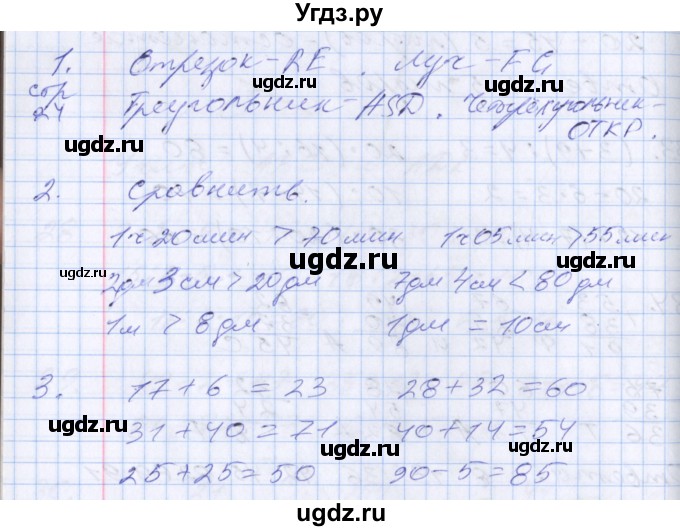 Угдз.ру
1. Отрезок - RE. Луч - FG
стр 24 Треугольник - ASD. Четырехугольник -
ОТКР.
2. Сравнить.
1ч 20мин > 70мин 1ч 05мин > 55мин
2дм 3см > 20дм 7дм 4см < 80дм
1м > 8дм 1дм = 10см
3. 17+6 = 23 28+32=60
31+40=71 40+14=54
25+25=50 90-5=85
ugdz.ru
ugdz.ru
ugdz.ru
ugdz.ru
ugdz.ru
ugdz.ru
ugdz.ru
ugdz.ru
ugdz.ru
ugdz.ru
ugdz.ru
ugdz.ru
ugdz.ru